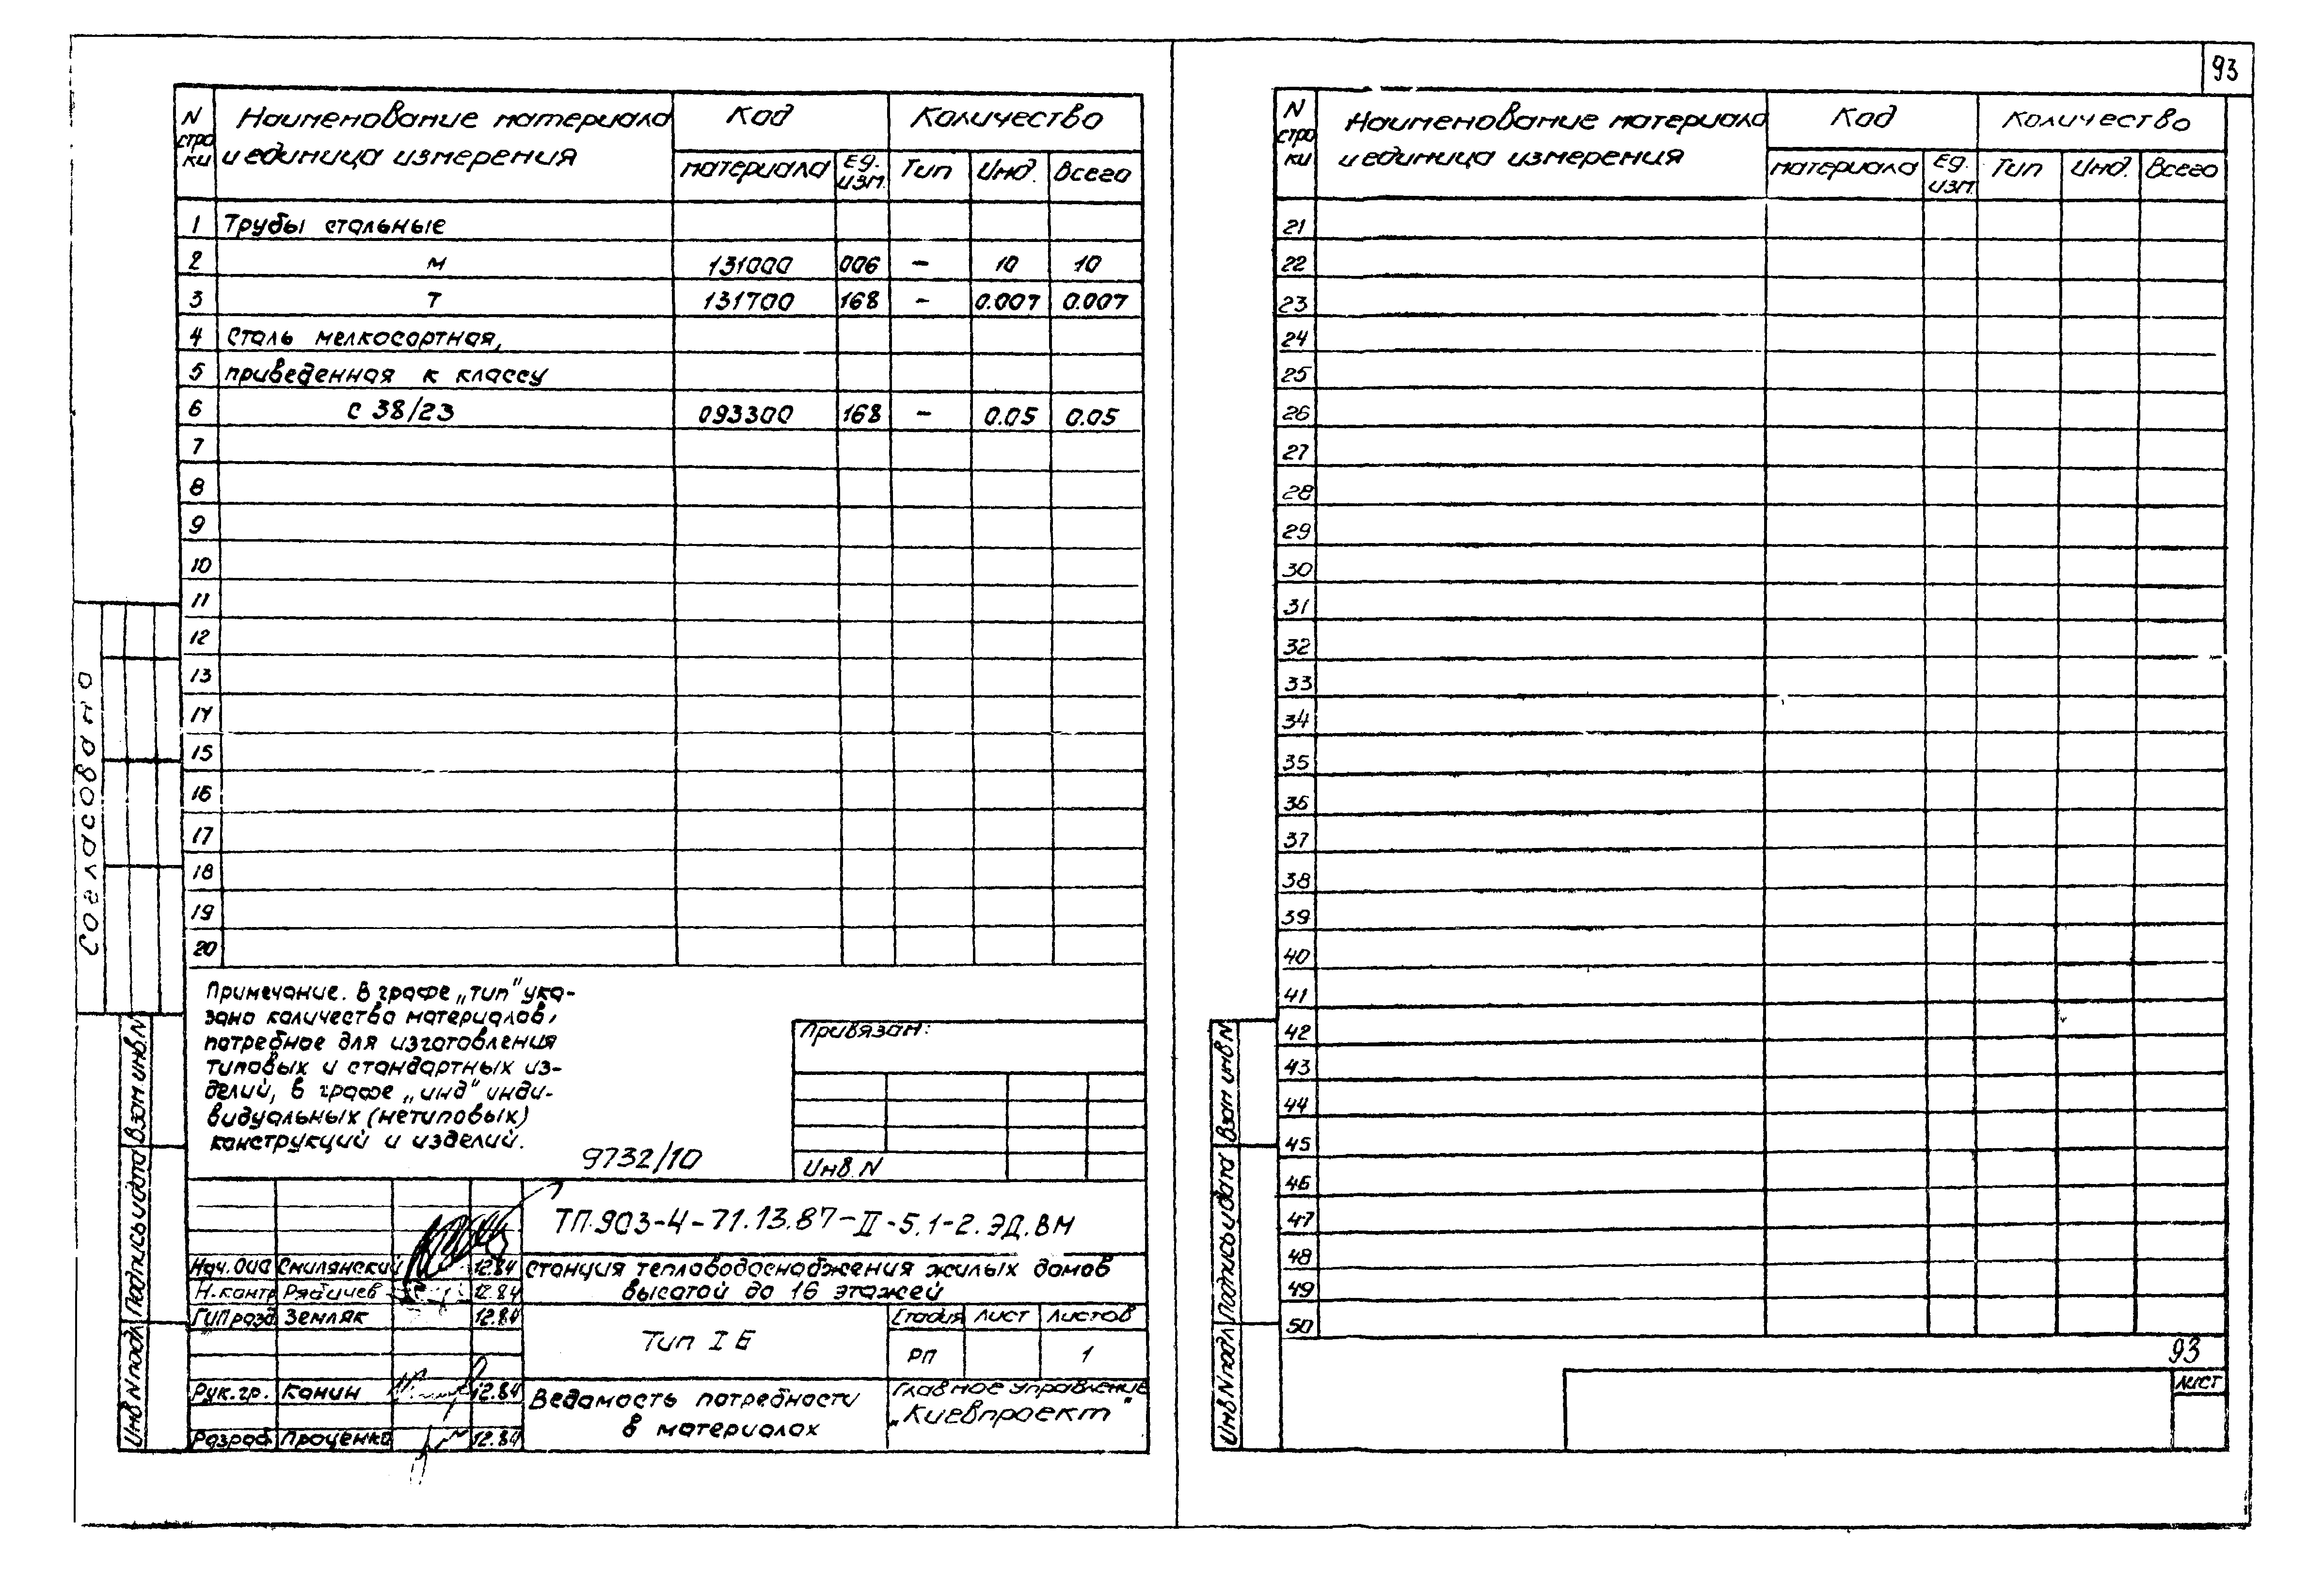 93
N стро ки | Наименование материала и единица измерения | Код | Количество
материала | Ед. изм. | Тип | Инд. | Всего
1 Трубы стальные
2 м 131000 006 – 10 10
3 т 131700 168 – 0.007 0.007
4 Сталь мелкосортная,
5 приведенная к классу
6 с 38/23 093300 168 – 0.05 0.05
7
8
9
10
11
12
13
14
15
16
17
18
19
20
Примечание. В графе „тип" ука-
зано количество материалов,
потребное для изготовления
типовых и стандартных из-
делий, в графе „инд" инди-
видуальных (нетиповых)
конструкций и изделий.
9732/10
Привязан:
Инв. N
ТП.903-4-71.13.87-II-5.1-2.ЭД.ВМ
Нач. ОИО Смилянский 12.84
Н.контр Рябичев 12.84
ГИП разд Земляк 12.84
Рук.гр. Канин 12.84
Разраб. Проценко 12.84
Станция тепловодоснабжения жилых домов
высотой до 16 этажей
Тип I Б
Стадия Лист Листов
РП 1
Ведомость потребности
в материалах
Главное управление
„Киевпроект"
Согласовано
Взам инв N
Подпись и дата
Инв N подл
N стро ки | Наименование материала и единица измерения | Код | Количество
материала | Ед. изм. | Тип | Инд. | Всего
21
22
23
24
25
26
27
28
29
30
31
32
33
34
35
36
37
38
39
40
41
42
43
44
45
46
47
48
49
50
93
Лист
Взам инв N
Подпись и дата
Инв N подл